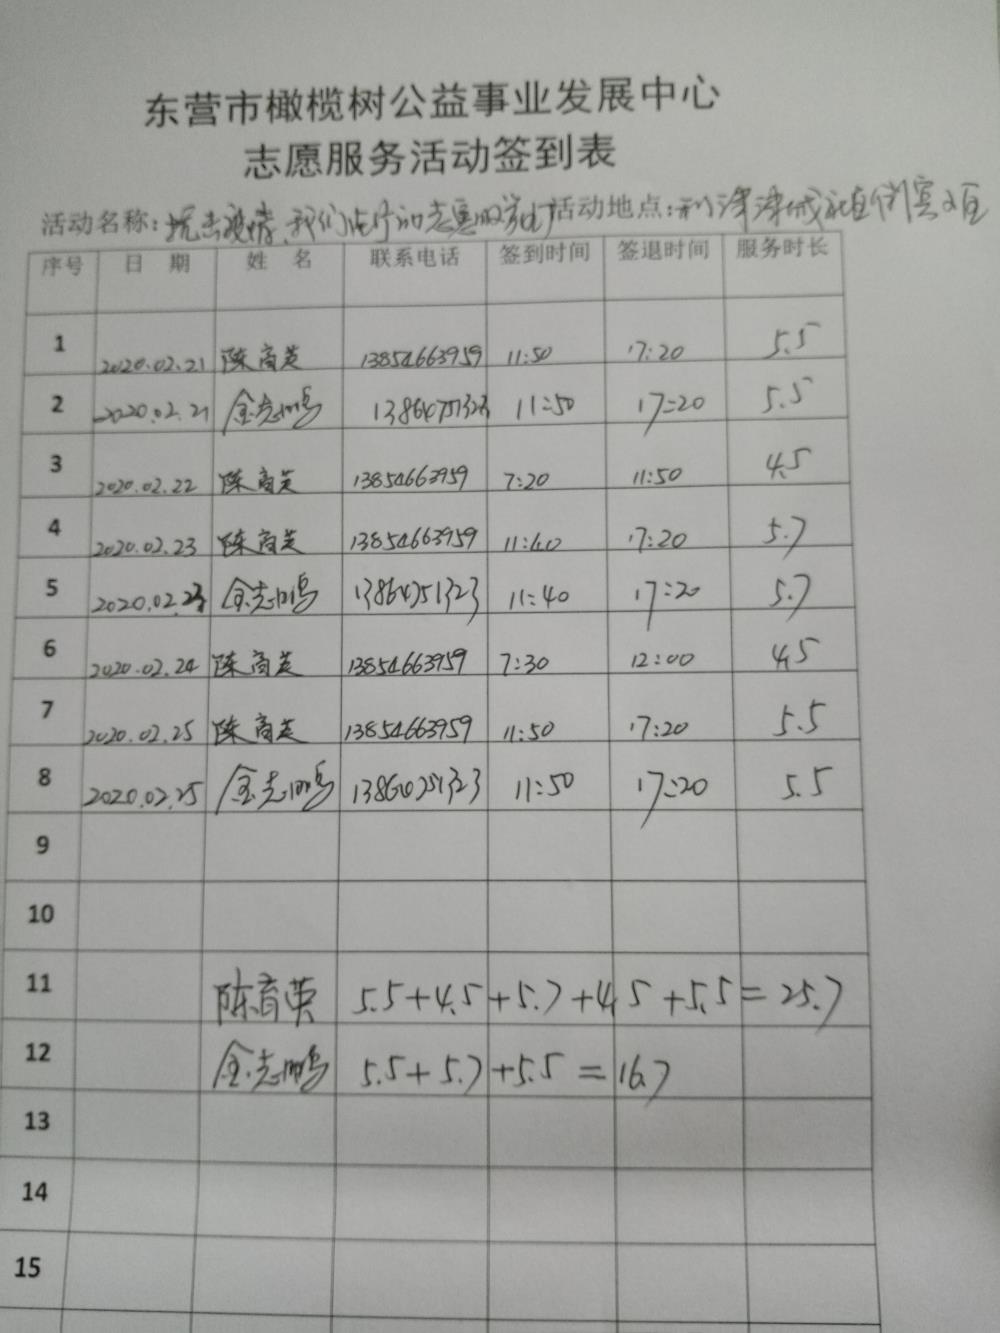 东营市橄榄树公益事业发展中心
志愿服务活动签到表
活动名称: 抗击疫情、我们在行动志愿服务 活动地点: 利津津城
序号 日 期 姓 名 联系电话 签到时间 签退时间 服务时长
1 2020.02.21 陈育英 13854663959 11:50 17:20 5.5
2 2020.02.21 金志鹏 13864751323 11:50 17:20 5.5
3 2020.02.22 陈育英 13854663959 7:20 11:50 4.5
4 2020.02.23 陈育英 13854663959 11:40 17:20 5.7
5 2020.02.23 金志鹏 13864751323 11:40 17:20 5.7
6 2020.02.24 陈育英 13854663959 7:30 12:00 4.5
7 2020.02.25 陈育英 13854663959 11:50 17:20 5.5
8 2020.02.25 金志鹏 13864751323 11:50 17:20 5.5
9
10
11 陈育英 5.5+4.5+5.7+4.5+5.5=25.7
12 金志鹏 5.5+5.7+5.5=16.7
13
14
15